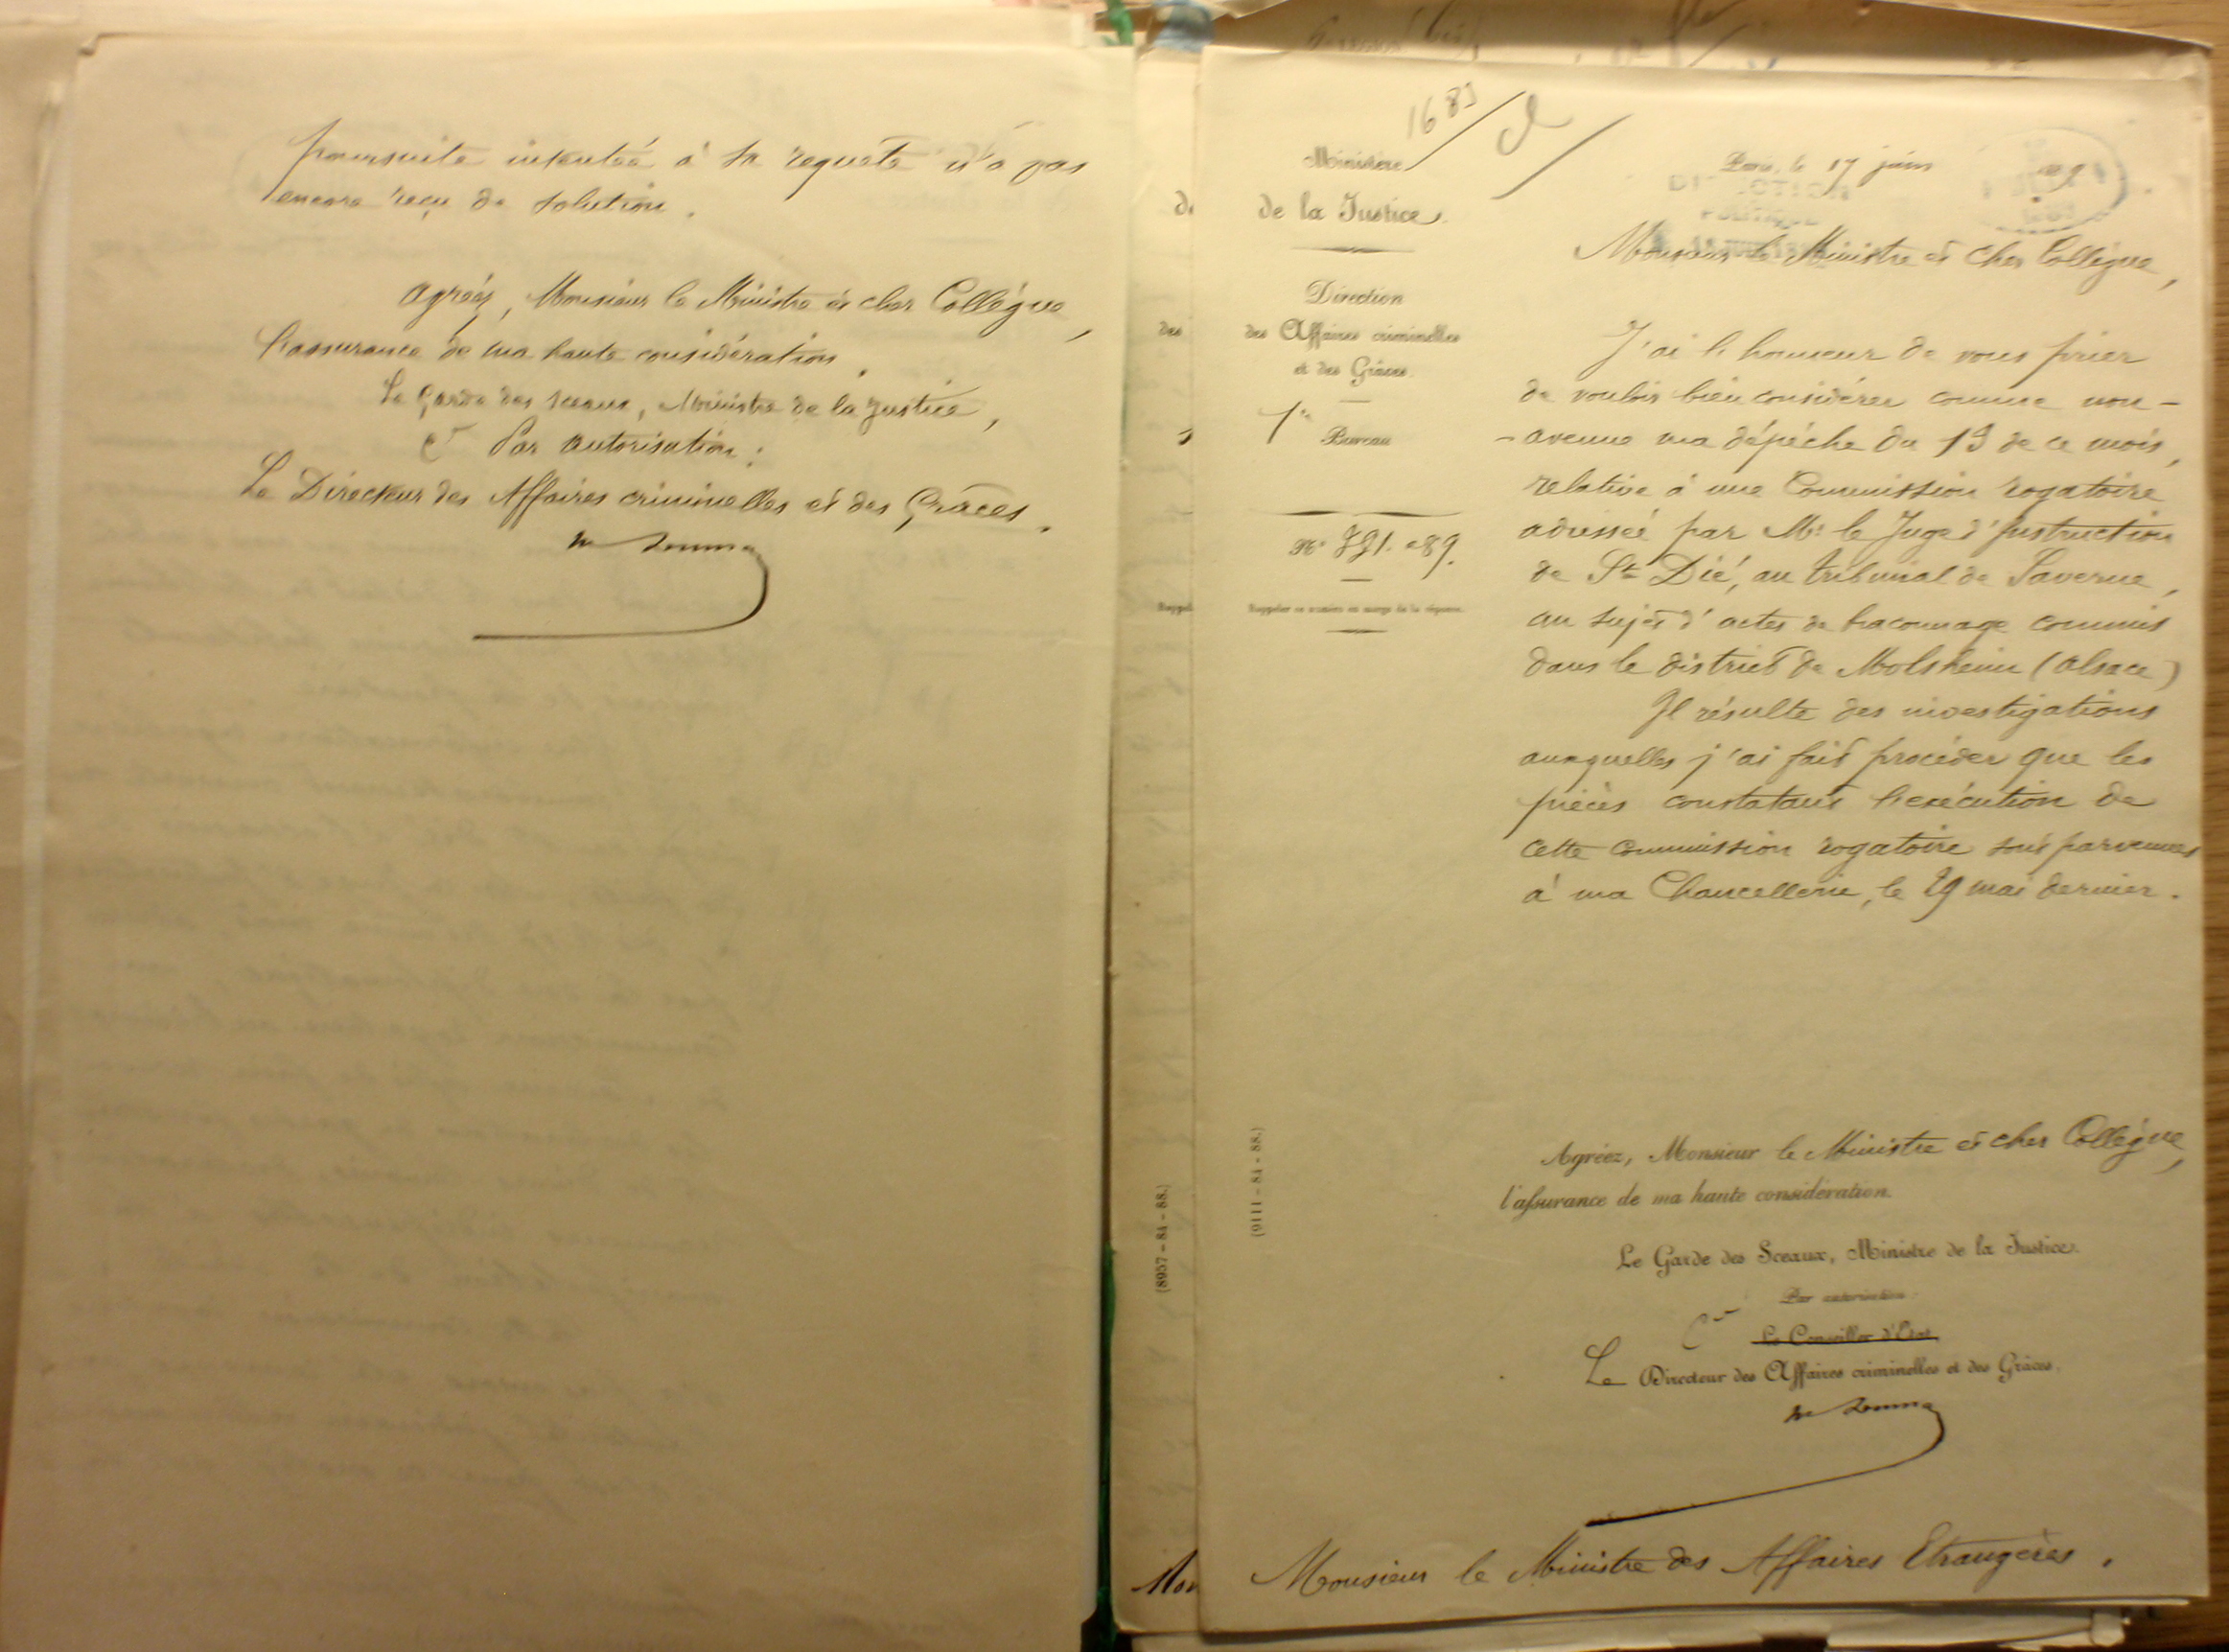 poursuite intentée à sa requête n'a pas
encore reçu de solution.
Agréez, Monsieur le Ministre et cher Collègue,
l'assurance de ma haute considération.
Le Garde des Sceaux, Ministre de la Justice,
Par autorisation :
Le Directeur des Affaires criminelles et des Grâces.
Ministère
de la Justice.
Direction
des Affaires criminelles
et des Grâces.
1er Bureau
Rappeler ce numéro en marge de la réponse.
(8957-84-88.)
(9111-84-88.)
Paris, le 17 juin
DIRECTION
POLITIQUE
Monsieur le Ministre et cher Collègue,
J'ai l'honneur de vous prier
de vouloir bien considérer comme non-
-avenue ma dépêche du 13 de ce mois,
relative à une Commission rogatoire
adressée par Mr le Juge d'Instruction
de St Dié, au tribunal de Saverne,
au sujet d'actes de braconnage commis
dans le district de Molsheim (Alsace)
Il résulte des investigations
auxquelles j'ai fait procéder que les
pièces constatant l'exécution de
cette commission rogatoire sont parvenues
à ma Chancellerie, le 29 mai dernier.
Agréez, Monsieur le Ministre et cher Collègue,
l'assurance de ma haute considération.
Le Garde des Sceaux, Ministre de la Justice.
Par autorisation :
Le Conseiller d'Etat
Le Directeur des Affaires criminelles et des Grâces.
Monsieur le Ministre des Affaires Etrangères.